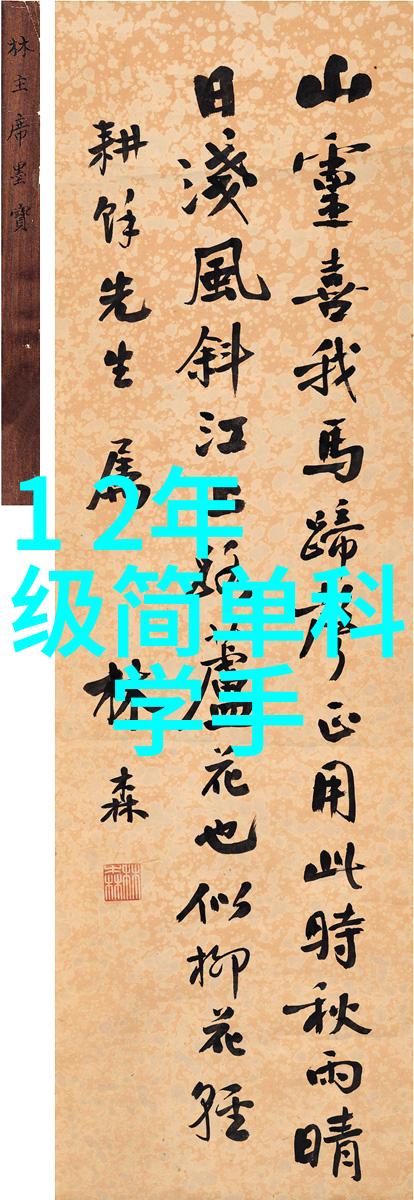 林主席墨寶
山靈喜我馬蹄正用此時秋雨晴
日淺風斜江上路蘆花也似柳花輕
耕餘先生屬 林森
1 2年
级简单科
学手